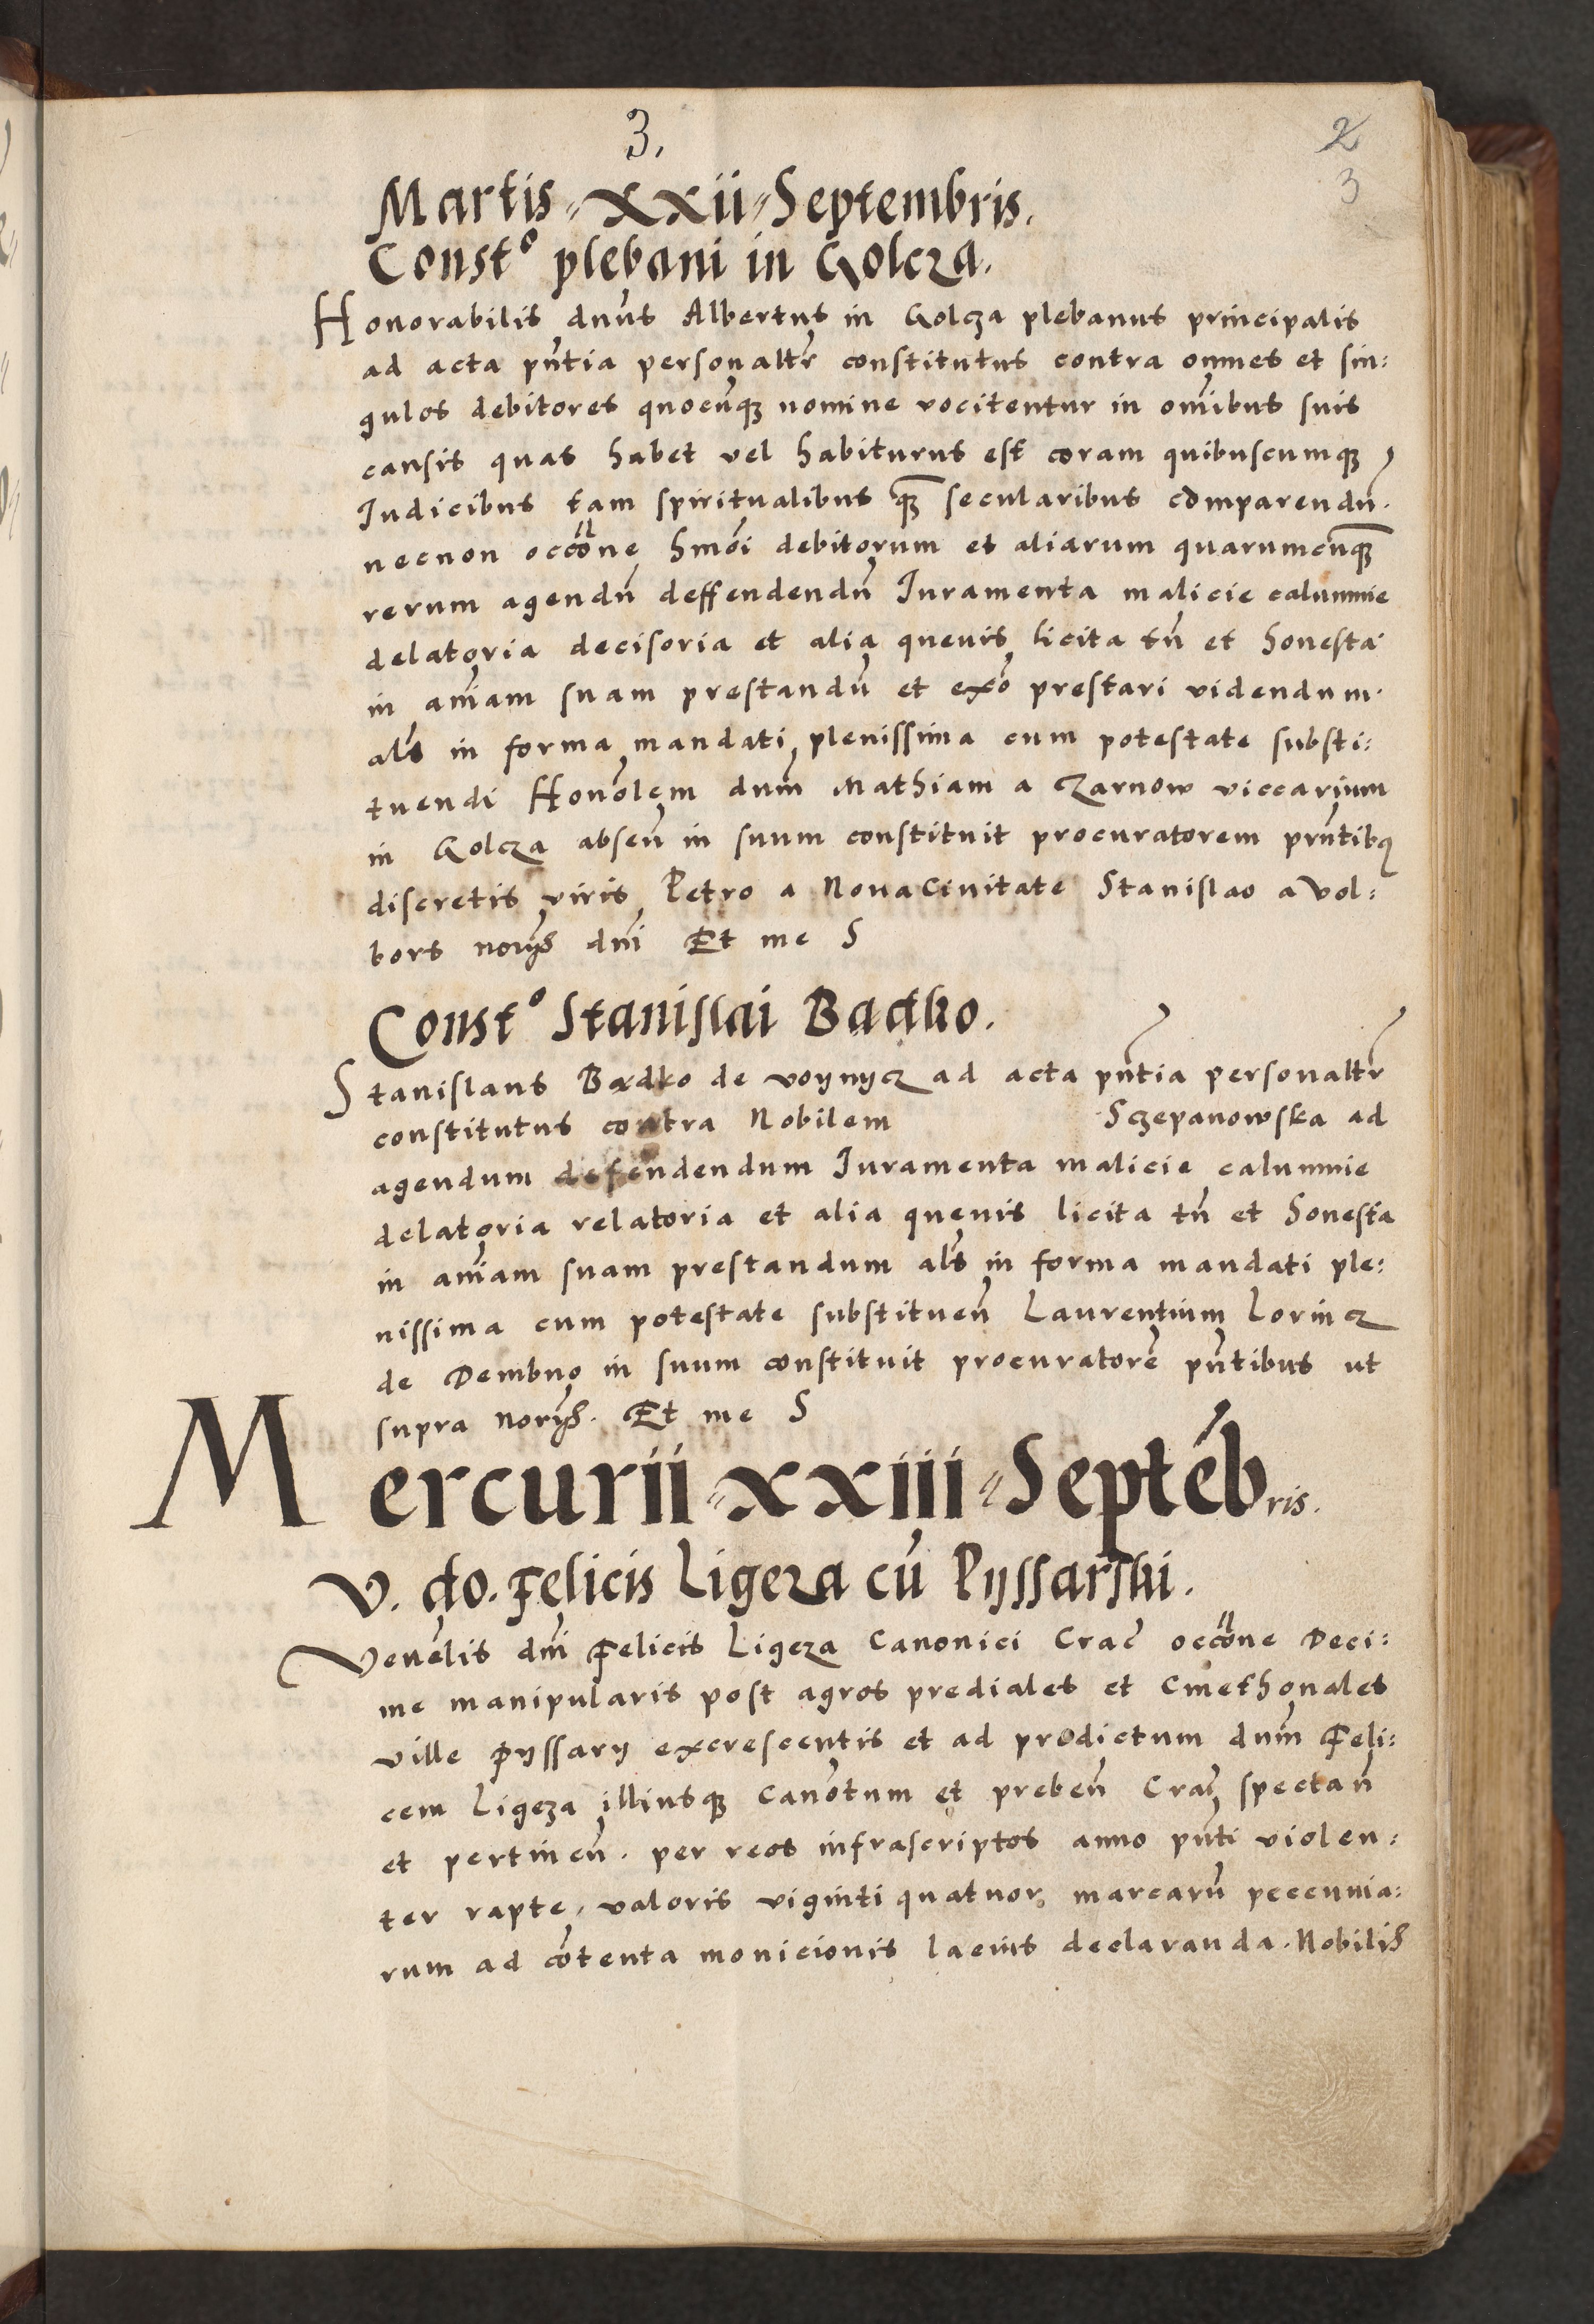 3.
2
3
Martis xxii Septembris.
Const° plebani in Golcza.
Honorabilis dnūs Albertus in Golcza plebanus principalis
ad acta pn̄tia personaltr̄ constitutus contra omnes et sin:
gulos debitores quocūqꝫ nomine vocitentur in omībus suis
causis quas habet vel habiturus est coram quibuscumqꝫ
Iudicibus tam spiritualibus qꝫ̄ secularibus comparendū.
necnon occōne hmōi debitorum et aliarum quarumcūqꝫ
rerum agendū deffendendū Iuramenta malicie calumnie
delatoria decisoria et alia quevis licita tn̄ et honesta
in aīam suam prestandū et exō prestari videndum.
als̄ in forma mandati plenissima cum potestate substi:
tuendi Honōlem dnm̄ Mathiam a Czarnow viccarium
in Golcza absen̄ in suum constituit procuratorem prn̄tibꝰ
discretis viris Petro a Nova Civitate Stanislao a Vol:
bors norijs dnī Et me S
Const° Stanislai Badko.
Stanislaus Badko de voynycz ad acta pn̄tia personaltr̄
constitutus contra Nobilem Sczepanowska ad
agendum defendendum Iuramenta malicie calumnie
delatoria relatoria et alia quevis licita tn̄ et honesta
in aīam suam prestandum als̄ in forma mandati ple:
nissima cum potestate substituen̄ Laurentium Lorincz
de Dembno in suum constituit procuratorē pn̄tibus ut
supra norijs. Et me S
Mercurii xxiii Septēbris.
V. do. Felicis Ligeza cū Pyssarski.
Venēlis dnī Felicis Ligeza Canonici Crac̄ occōne Deci:
me manipularis post agros prediales et Cmethonales
ville Pyssary excrescentis et ad prodictum dnm̄ Feli:
cem Ligeza illiusqꝫ Canōtum et preben̄ Crac̄ spectan̄
et pertinen̄. per reos infrascriptos anno pn̄ti violen:
ter rapte, valoris viginti quatuor marcarū peccunia:
rum ad cōtenta monicionis lacius declaranda. Nobilis